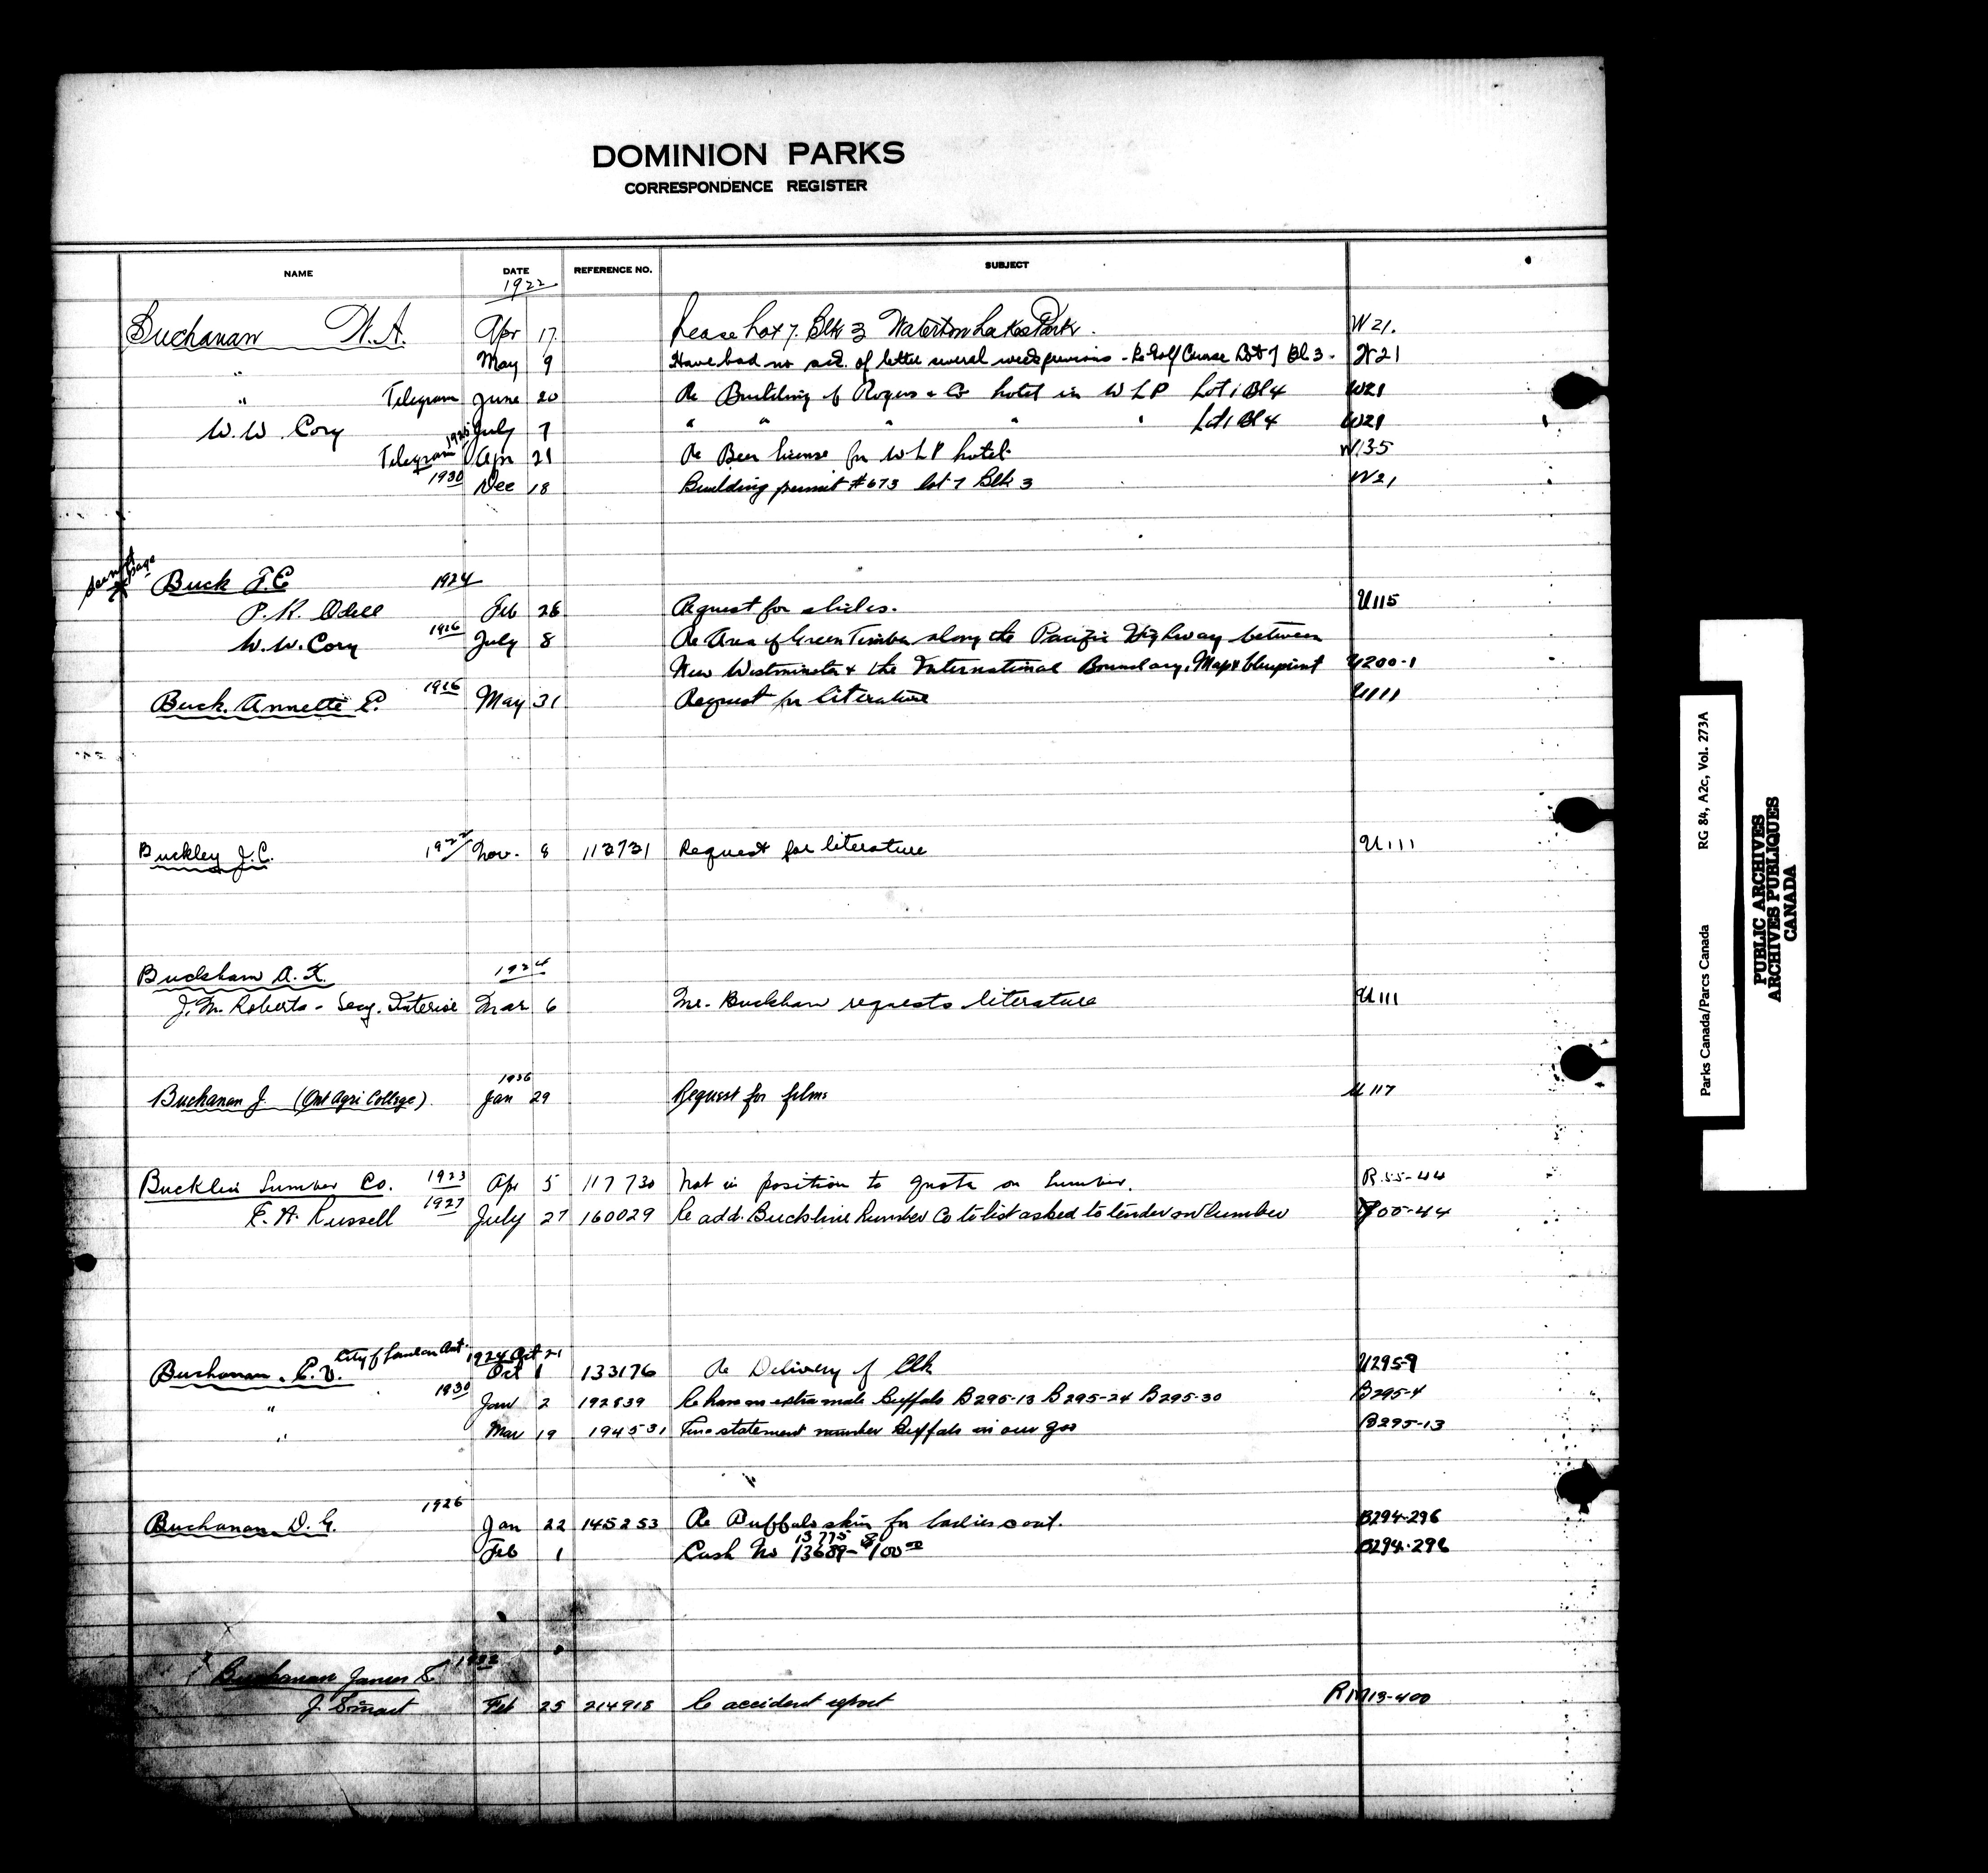 DOMINION PARKS
CORRESPONDENCE REGISTER
NAME DATE REFERENCE NO. SUBJECT
1922
Buchanan W.A. Apr 17 Lease Lot 7. Blk 3 Waterton Lakes Park. W21.
" May 9 Have had no ack. of letter several weeks previous - Re Golf Course Lot 7 Bl 3. W21
" Telegram June 20 Re Building of Rogers & Co hotel in W L P Lot 1 Bl 4 W21
W. W. Cory July 7 " " " " " Lot 1 Bl 4 W21
Telegram 1925 Apr 21 Re Beer license for W L P hotel W135
1930 Dec 18 Building permit #673 lot 7 Blk 3 W21
See next page
Buck F.E 1924
P. R. Odell Feb 26 Request for slides. U115
W. W. Cory 1926 July 8 Re Area of Green Timber along the Pacific Highway between
New Westminster & the International Boundary. Map & blueprint U200-1
Buck. Annette E. 1926 May 31 Request for literature U111
Buckley J. C. 1922 Nov. 8 113731 Request for literature U111
Buckham A. K. 1924
J. M. Roberts - Secy. Interior Mar 6 Mr. Buckham requests literature U111
1936
Buchanan J. (Ont Agri College) Jan 29 Request for films U 117
Bucklin Lumber Co. 1923 Apr 5 117730 Not in position to quote on lumber. R.55-44
E. A. Russell 1927 July 27 160029 Re add. Buckline Lumber Co to list asked to tender on lumber 55-44
City of London Ont. 1924 Oct 21
Buchanan. E. V. Oct 1 133176 Re Delivery of Elk U295-9
" 1930 Jan 2 192839 Re have an extra male Buffalo B295-13 B295-24 B295-30 B295-4
" Mar 19 194531 statement number Buffalo in our zoo B295-13
1926
Buchanan D. G. Jan 22 145253 Re Buffalo skin for ladies coat. B294-296
13775
Feb 1 Cash No 13689 - $100 00 B294-296
Buchanan James S. 1932
J. Smart Feb 25 214918 Re accident report RM13-400
Parks Canada/Parcs Canada RG 84, A2c, Vol. 273A
PUBLIC ARCHIVES
ARCHIVES PUBLIQUES
CANADA